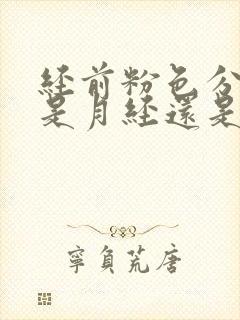 經前粉色分
是月經還是
寧負荒唐